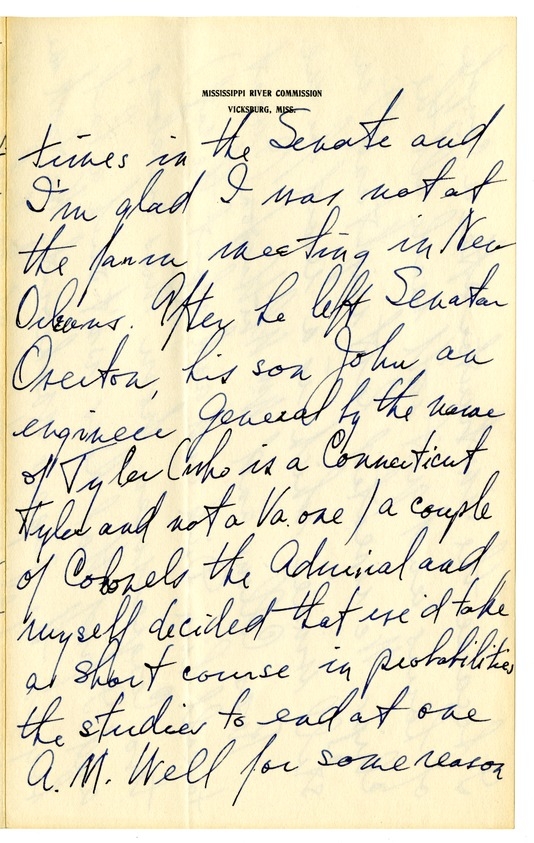 MISSISSIPPI RIVER COMMISSION
VICKSBURG, MISS.
times in the Senate and
I'm glad I was not at
the farm meeting in New
Orleans. After he left Senator
Overton, his son John an
engineer General by the name
of Tyler (who is a Connecticut
Tyler and not a Va. one) a couple
of Colonels the Admiral and
myself decided that we'd take
a short course in probabilities
the studies to end at one
A.M. Well for some reason